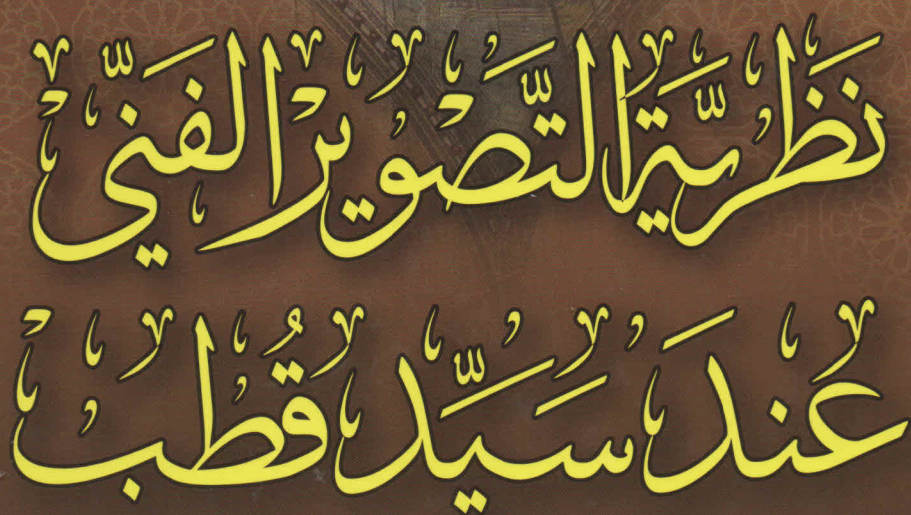 نَظَرِيَّةُ التَّصْوِيرِ الفَنِّيِّ
عِندَ سَيِّد قُطب